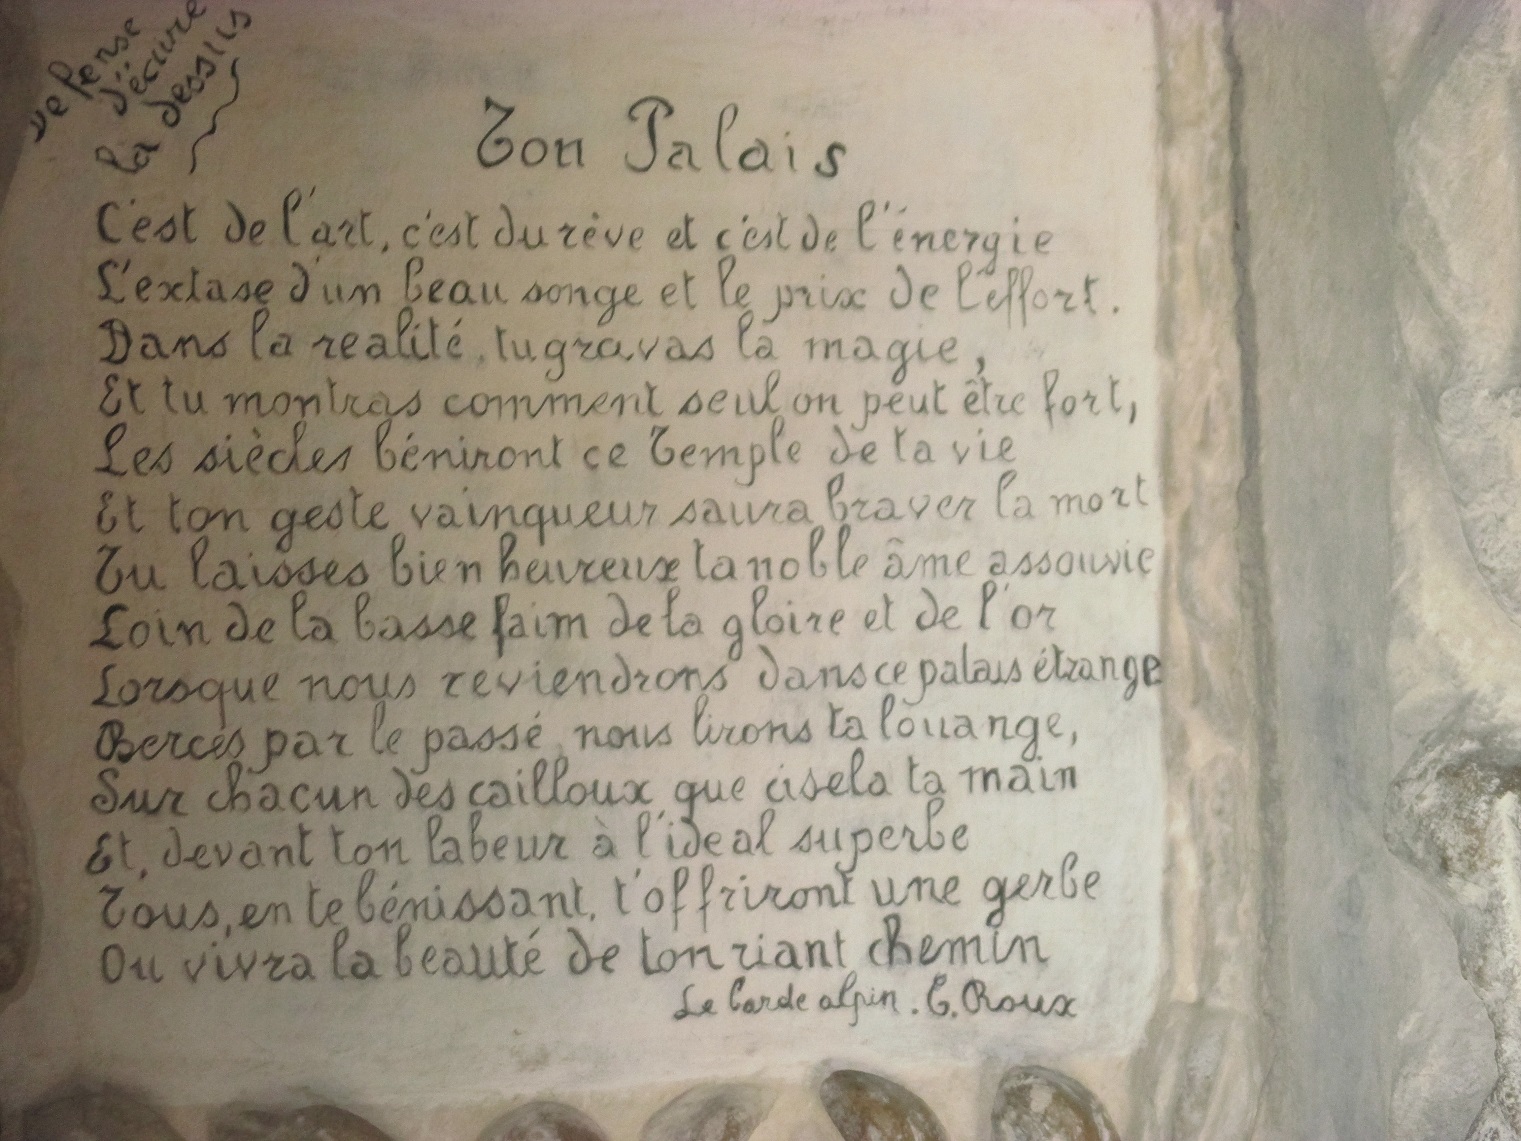 Defense
d'écrire
la dessus
Ton Palais
C'est de l'art, c'est du rêve et c'est de l'énergie
L'extase d'un beau songe et le prix de l'effort.
Dans la realité, tu gravas la magie,
Et tu montras comment seul on peut être fort,
Les siècles béniront ce Temple de ta vie
Et ton geste vainqueur saura braver la mort
Tu laisses bien heureux ta noble âme assouvie
Loin de la basse faim de la gloire et de l'or
Lorsque nous reviendrons dans ce palais étrange
Bercés par le passé, nous lirons ta louange,
Sur chacun des cailloux que cisela ta main
Et, devant ton labeur à l'ideal superbe
Tous, en te bénissant, t'offriront une gerbe
Ou vivra la beauté de ton riant chemin
Le barde alpin. E. Roux